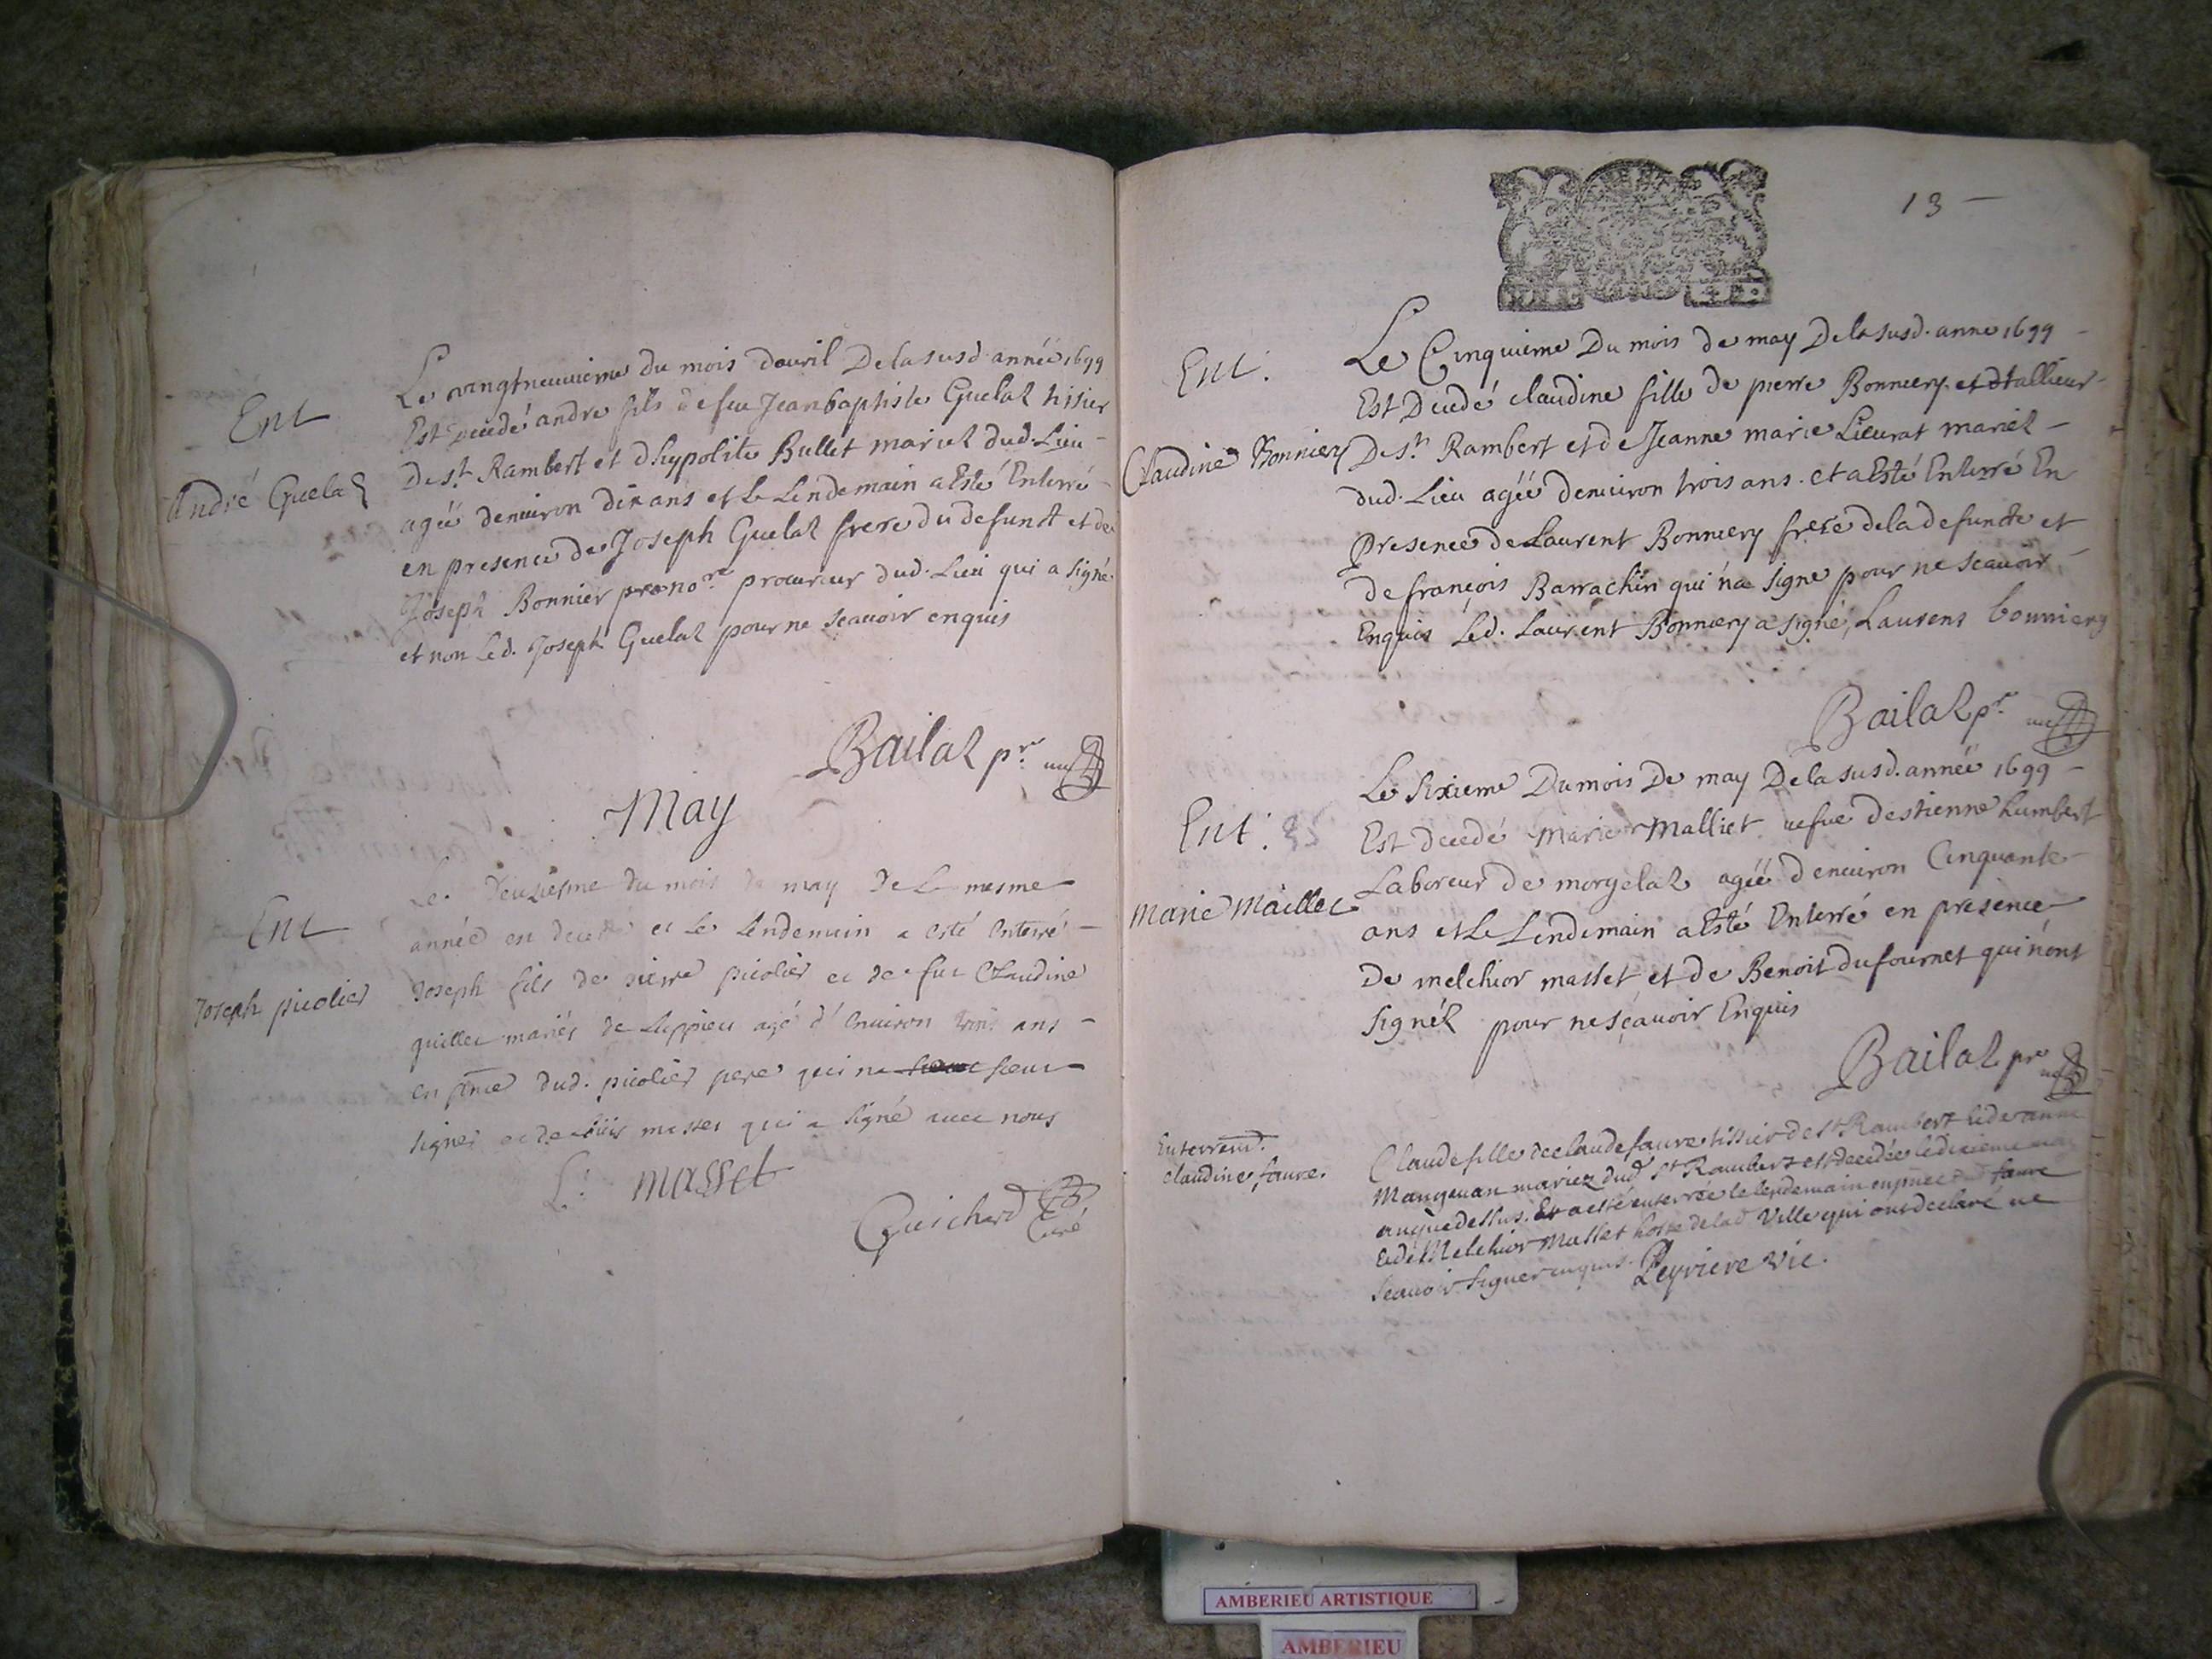 Ent
André Guelaz
Le vingtneuvieme du mois davril De la susd. année 1699
Est decedé andre fils de feu Jean baptiste Guelaz tissier
De st. Rambert et dhypolite Bullet mariez dud. Lieu
agéé denuiron dix ans et le Lendemain a Esté Enterré
en presence de Joseph Guelaz frere du defunct et de
Joseph Bonnier procureur dud. Lieu qui a signé
et non Led. Joseph Guelaz pour ne scauoir enquis
Bailaz pr.
May
Ent
Joseph picolier
Le deuxiesme du mois de may De La mesme
année est decedé et le Lendemain a esté enterré
Joseph fils de pierre picolier et de feue Claudine
quillet mariés de Luppieu agé d'enuiron trois ans
en pnce dud. picolier pere qui ne sceut
signer et de Louis masset qui a signé auec nous
L. masset
Guichard Curé
13
Ent.
Claudine Bonniery
Le Cinquieme Du mois de may De la susd. anne 1699
Est Decedé claudine fille de pierre Bonniery et tallieur
De st. Rambert et de Jeanne marie Lieurat mariez
dud. Lieu agéé denuiron trois ans. et a Esté Enterré En
Presence de Laurent Bonniery frere de la defuncte et
de françois Barrachin qui n'a signe pour ne scauoir
Enquis Led. Laurent Bonniery a signé, Laurens bonniery
Bailaz pr.
Ent.
Marie Maillet
Le Sixieme Du mois De may De la susd. année 1699
Est decedé Marie Malliet uefue destienne humbert
Laboreur de morgelaz agéé denuiron Cinquante
ans et le Lendemain a Esté Enterré en presence
De melchior masset et de Benoit dufournet qui n'ont
signéz pour ne sçauoir Enquis
Bailaz pre
Enterremt.
claudine faure.
Claude fille de claude faure tissier de st Rambert et de anne
Mangeuan mariez dud. st Rambert est decedée le dixieme may
que dessus. Et a esté enterrée le lendemain en pnce dud faure
Et de Melchior Masset hoste de lad Ville qui ont declaré ne
scauoir signer enquis. Peyriere Vic.
AMBERIEU ARTISTIQUE
AMBERIEU